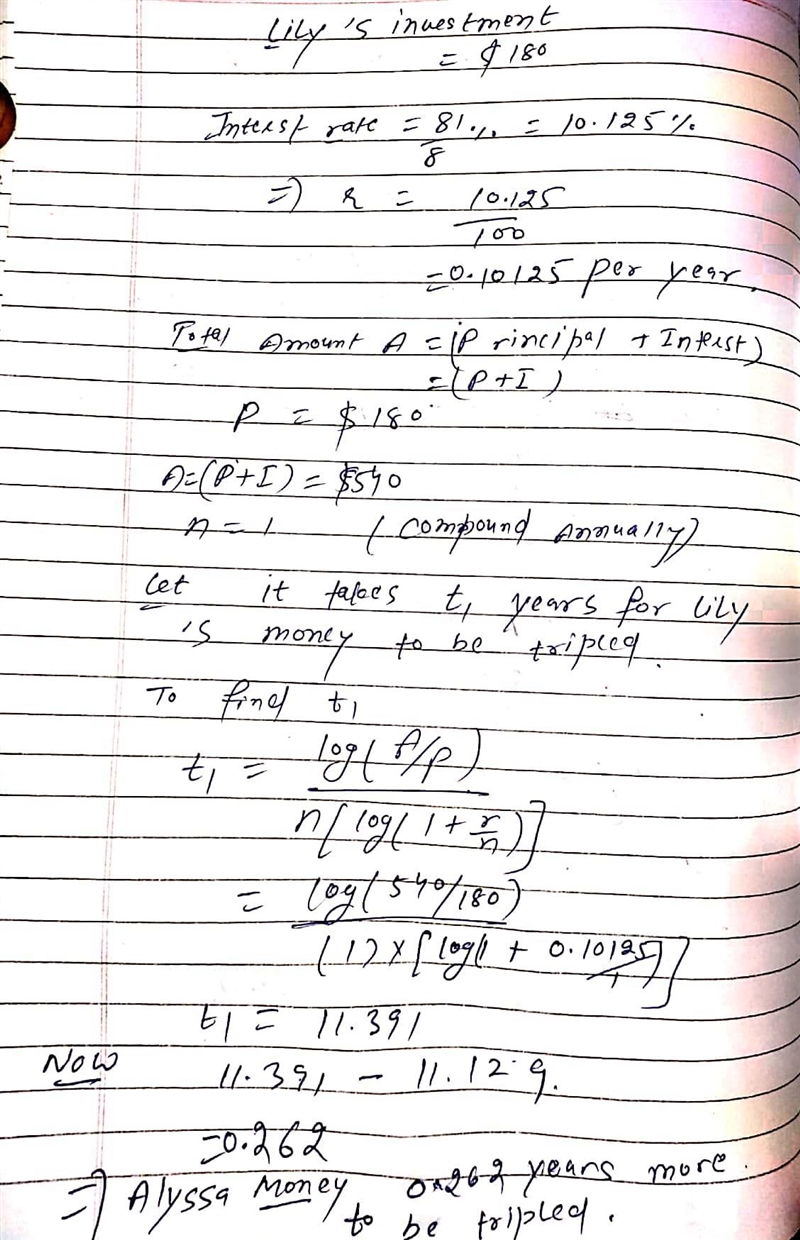 Lily 's investment
= $ 180
Interest rate = 81/8 % = 10.125 %
=) r = 10.125/100
= 0.10125 per year.
Total Amount A = (Principal + Interest)
= (P + I)
P = $ 180
A = (P + I) = $540
n = 1 (Compound Annually)
Let it takes t1 years for Lily
's money to be tripled.
To find t1
t1 = log(A/P)
n[log(1 + r/n)]
= log(540/180)
(1) × [log(1 + 0.10125/1)]
t1 = 11.391
Now 11.391 - 11.129.
= 0.262
=) Alyssa Money 0.262 years more
to be tripled.